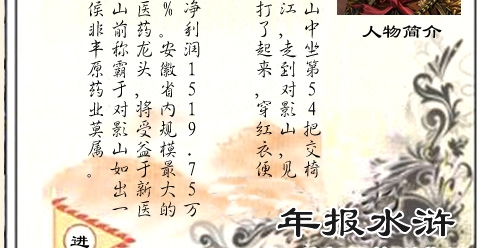 人物简介
山中坐第54把交椅
江,走到对影山,见
打了起来,穿红衣便
净利润1519.75万
%。安徽省内规模最大的
医药龙头,将受益于新医
山前称霸于对影山如出一
侯非丰原药业莫属。
年报水浒
进